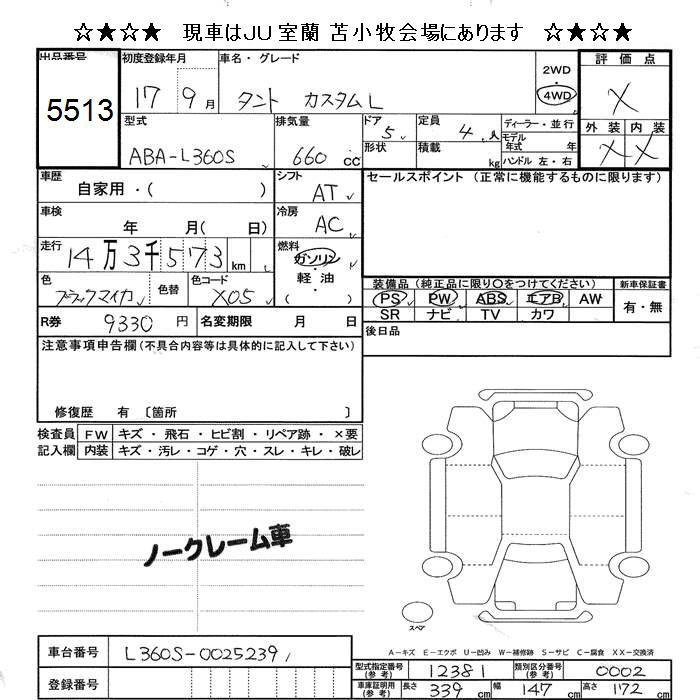 ☆★☆★ 現車はJU室蘭 苫小牧会場にあります ☆★☆★
出品番号 初度登録年月 車名・グレード 2WD 評価点
5513 17 9月 タント カスタムL 4WD X
型式 排気量 ドア 5 定員 4人 ディーラー・並行 外装 内装
ABA-L360S 660 cc 形状 積載 kg モデル年式 年 X X
ハンドル 左・右
車歴 シフト セールスポイント (正常に機能するものに限ります)
自家用・( ) AT
車検 年 月( 日) 冷房 AC
走行 14万3千573km 燃料 ガソリン・軽油・( )
色 色替 色コード 装備品 (純正品に限り○をつけてください) 新車保証書
ブラックマイカ X05 PS PW ABS エアB AW 有・無
SR ナビ TV カワ
R券 9330円 名変期限 月 日 後日品
注意事項申告欄(不具合内容等は具体的に記入して下さい)
修復歴 有 〔箇所 〕
検査員 FW キズ・飛石・ヒビ割・リペア跡・×要
記入欄 内装 キズ・汚レ・コゲ・穴・スレ・キレ・破レ
ノークレーム車
スペア
A-キズ E-エクボ U-凹み W-補修跡 S-サビ C-腐食 XX-交換済
車台番号 L360S-0025239
登録番号
型式指定番号(参考) 12381 類別区分番号(参考) 0002
車庫証明用(参考) 長さ 339cm 幅 147cm 高さ 172cm